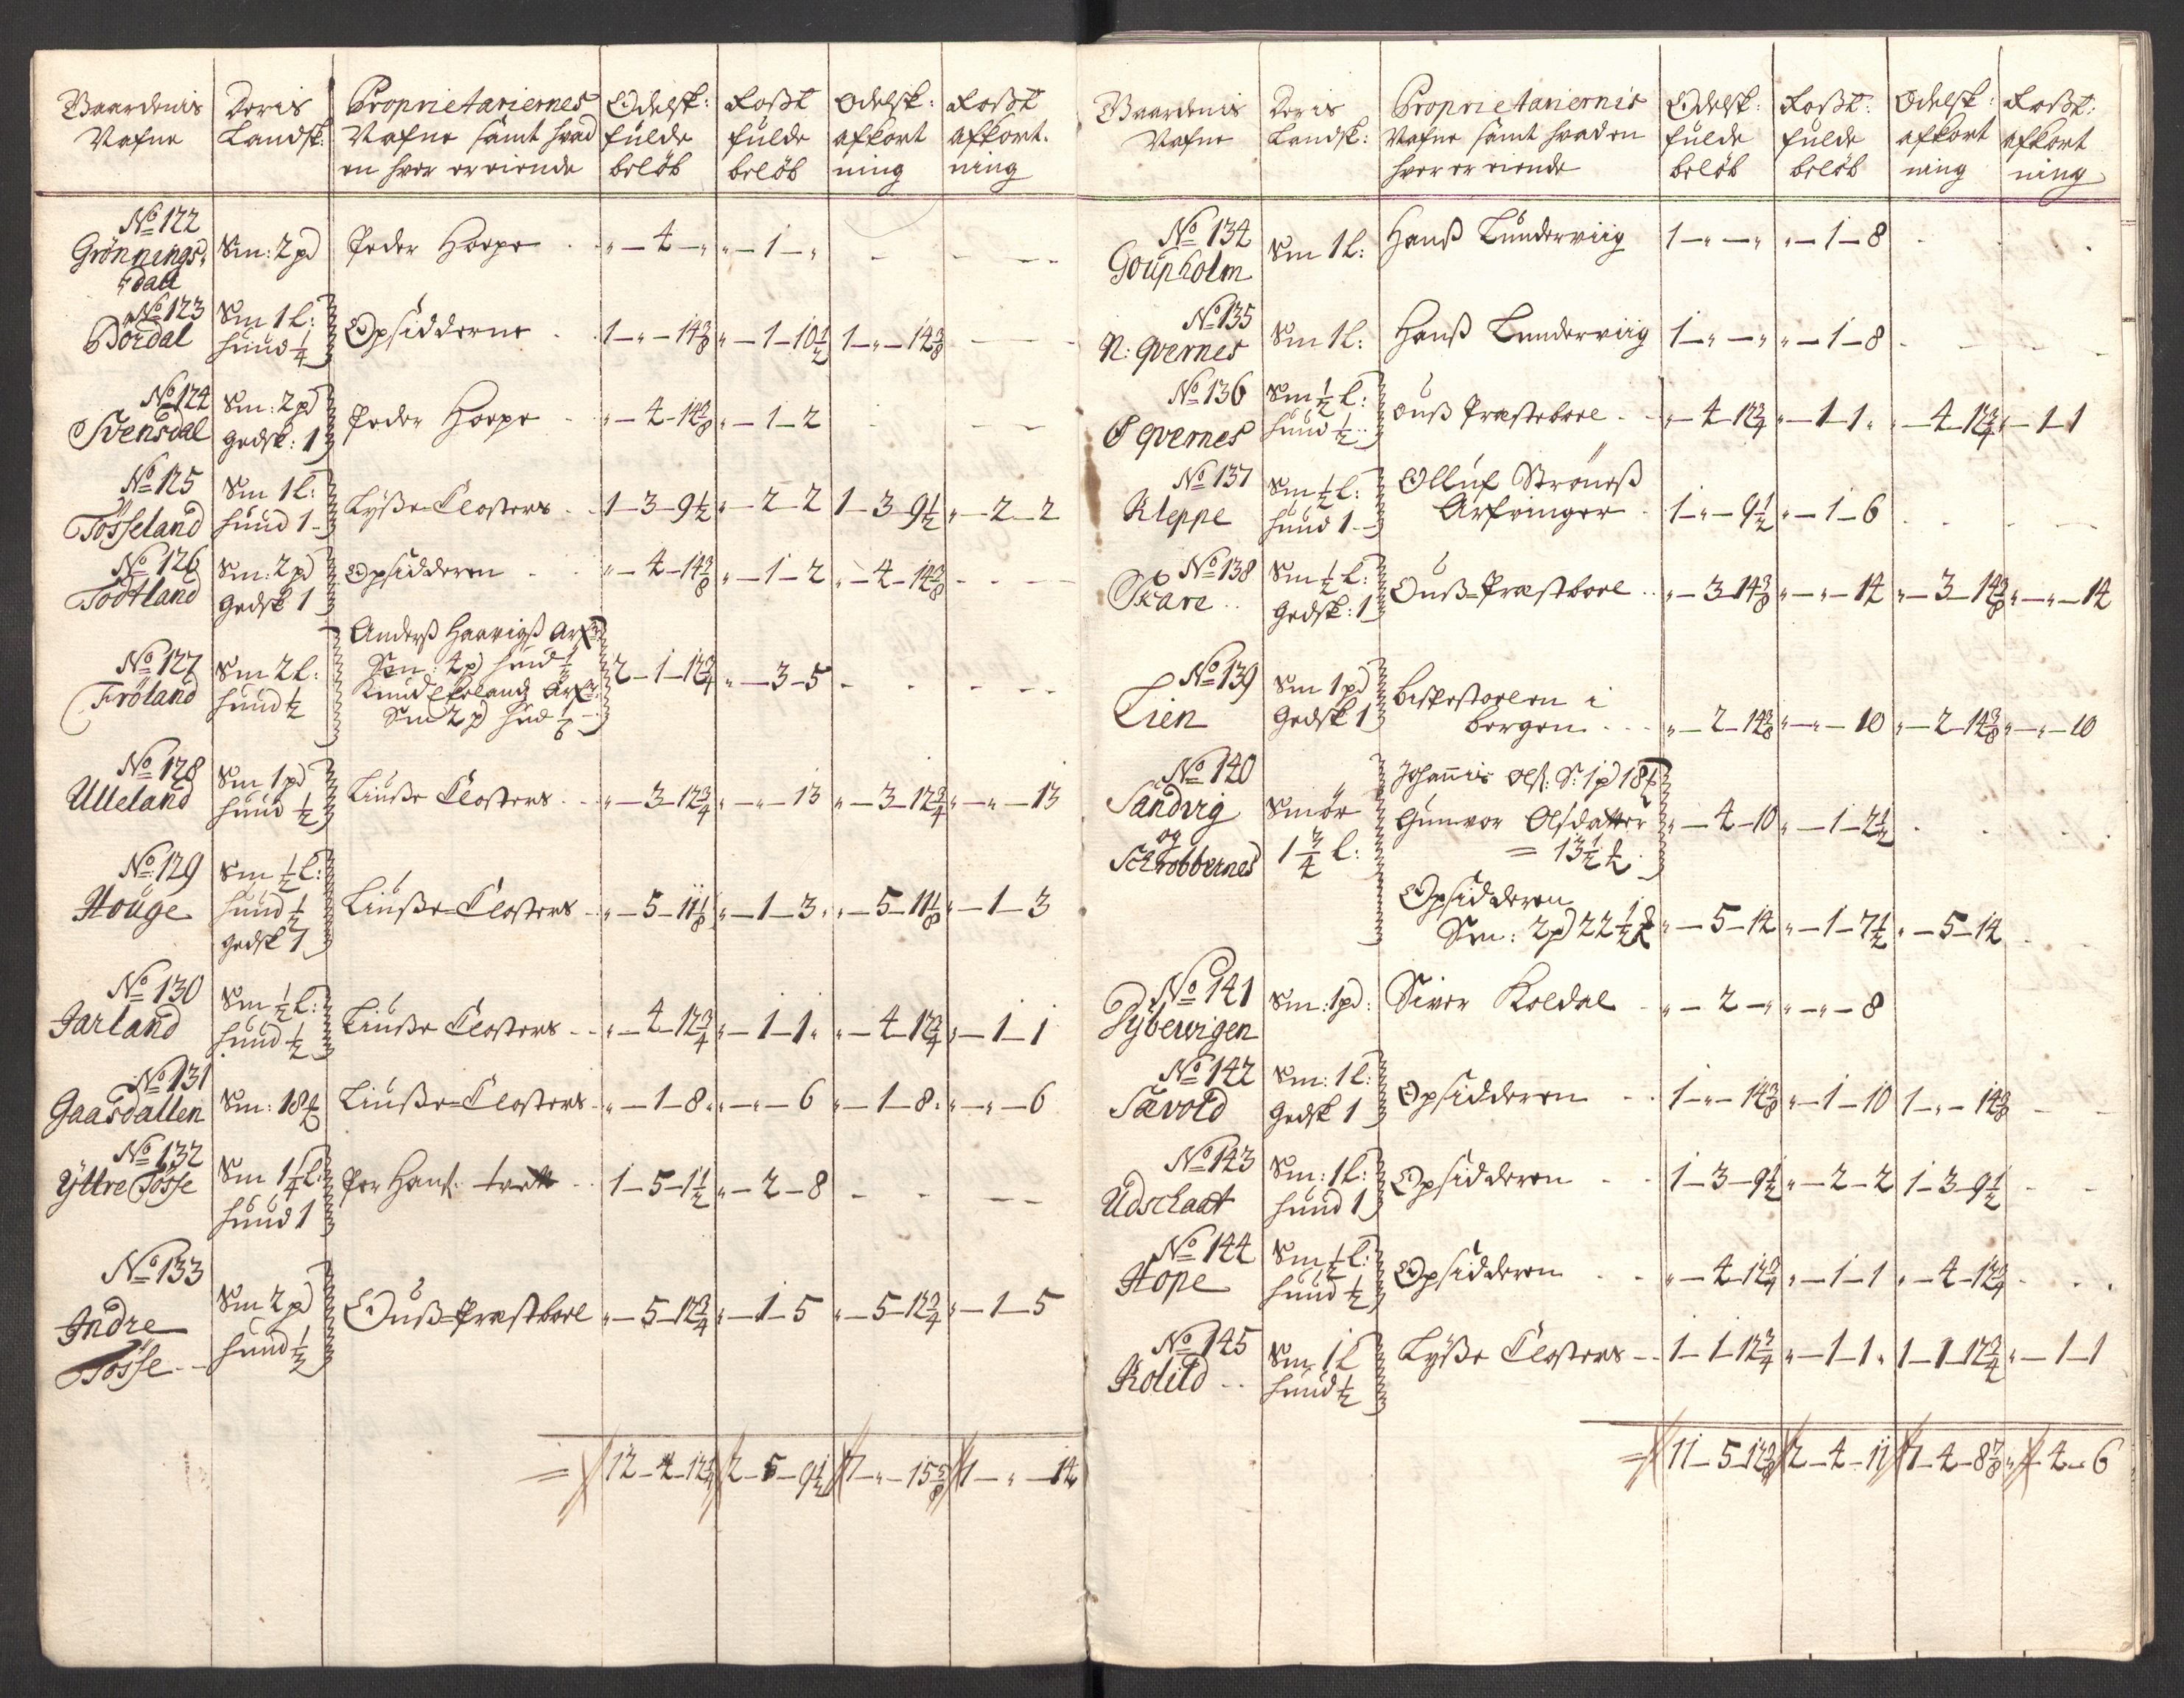 Gaardenis Nafne | Deris Landsk: | Proprietariernes Nafne samt hvad en hver er eiende | Odelsk: fulde beløb | Roßt fulde beløb | Odelsk: afkort ning | Roßt afkort. ning
No 122 Grönnings, dall | Sm: 2 pd | Peder Hoope | " — 4 — " | " — 1 — "
No 123 Dördal | Sm 1 l: hund ¼ | Opsidderne | 1 — " — 14 3/8 | " — 1 — 10 ½ | 1 — " — 14 3/8
No 124 Svensdal | Sm: 2 pd Gedsk: 1 | Peder Hoope | " — 4 — 14 3/8 | " — 1 — 2
No 125 Tösseland | Sm 1 l: hund 1 | Lyße Closters | 1 — 3 — 9 ½ | " — 2 — 2 | 1 — 3 — 9 ½ | " — 2 — 2
No 126 Tödtland | Sm: 2 pd Gedsk 1 | Opsidderen | " — 4 — 14 3/8 | " — 1 — 2 | " — 4 — 14 3/8
No 127 Fröland | Sm 2 l: hund ½ | Anderß Haavigß Arf:
Sm: 4 pd hud ⅓
Knud Arf:
Sm 2 pd hud 1/6 | 2 — 1 — 12 ¾ | " — 3 — 5
No 128 Ulleland | Sm 1 pd hund ½ | Liuße Closters | " — 3 — 12 ¾ | " — " — 13 | " — 3 — 12 ¾ | " — " — 13
No 129 Houge | Sm ½ l: hund ½ gedsk 1 | Liuße Closters | " — 5 — 11 1/8 | " — 1 — 3 | " — 5 — 11 1/8 | " — 1 — 3
No 130 Jarland | Sm ½ l: hund ½ | Liuße Closters | " — 4 — 12 ¾ | " — 1 — 1 | " — 4 — 12 ¾ | " — 1 — 1
No 131 Gaasdallen | Sm: 18 ℔ | Liuße Closters | " — 1 — 8 | " — " — 6 | " — 1 — 8 | " — " — 6
No 132 Yttre Tösse | Sm 1 ¼ l: hund 1 | Per Hans: | 1 — 5 — 1 ½ | " — 2 — 8
No 133 Indre Tösse | Sm 2 pd hund ½ | Ouß Præstbole | " — 5 — 12 ¾ | " — 1 — 5 | " — 5 — 12 ¾ | " — 1 — 5
= 12 — 4 — 12 ¼ | 2 — 5 — 9 ½ | 7 — " — 15 5/8 | 1 — " — 14
Gaardenis Nafne | Deris Landsk: | Proprietariernis Nafne samt hvad en hver er eiende | Odelsk: fulde beløb | Roßt: fulde beløb | Odelsk: afkort ning | Roßt: afkort ning
No 134 Goupholm | Sm 1 l: | Hanß Lunderviig | 1 — " — " | " — 1 — 8
No 135 N: Qvernes | Sm 1 l: | Hanß Lunderviig | 1 — " — " | " — 1 — 8
No 136 S Qvernes | Sm ½ l: hund ½ | Ouß Præstebole | " — 4 — 12 ¾ | " — 1 — 1 | " — 4 — 12 ¾ | " — 1 — 1
No 137 Kleppe | Sm ½ l: hund 1 | Olluf Ströuß
Arfvinger | 1 — " — 9 ½ | " — 1 — 6
No 138 Skare | Sm ½ l: Gedsk: 1 | Ouß Præstbole | " — 3 — 14 3/8 | " — " — 14 | " — 3 — 14 3/8 | " — " — 14
No 139 Lien | Sm 1 pd Gedsk 1 | Bispestoelen i
Bergen | " — 2 — 14 3/8 | " — " — 10 | " — 2 — 14 3/8 | " — " — 10
No 140 Sandvig og Schrobbernes | Smör 1 ¾ l: | Johannis Ols: S: 1 pd 18 ℔
Gunvor Olsdatter
= 13 ½ ℔ | " — 4 — 10 | " — 1 — 2 ½
Opsidderen
Sm: 2 pd 22 ½ ℔ | " — 5 — 14 | " — 1 — 7 ½ | " — 5 — 14
No 141 Dybevigen | Sm: 1 pd: | Siver Koldal | " — 2 — " | " — " — 8
No 142 Sævold | Sm: 1 l: Gedsk 1 | Opsidderen | 1 — " — 14 3/8 | " — 1 — 10 | 1 — " — 14 3/8
No 143 Udschaat | Sm: 1 l: hund 1 | Opsidderen | 1 — 3 — 9 ½ | " — 2 — 2 | 1 — 3 — 9 ½
No 144 Hope | Sm ½ l: hund ½ | Opsidderen | " — 4 — 12 ¾ | " — 1 — 1 | " — 4 — 12 ¾
No 145 Kolild | Sm 1 l hund ½ | Lyße Closters | 1 — 1 — 12 ¾ | " — 1 — 1 | 1 — 1 — 12 ¾ | " — 1 — 1
= 11 — 5 — 12 3/8 | 2 — 4 — 11 | 7 — 4 — 8 7/8 | " — 4 — 6